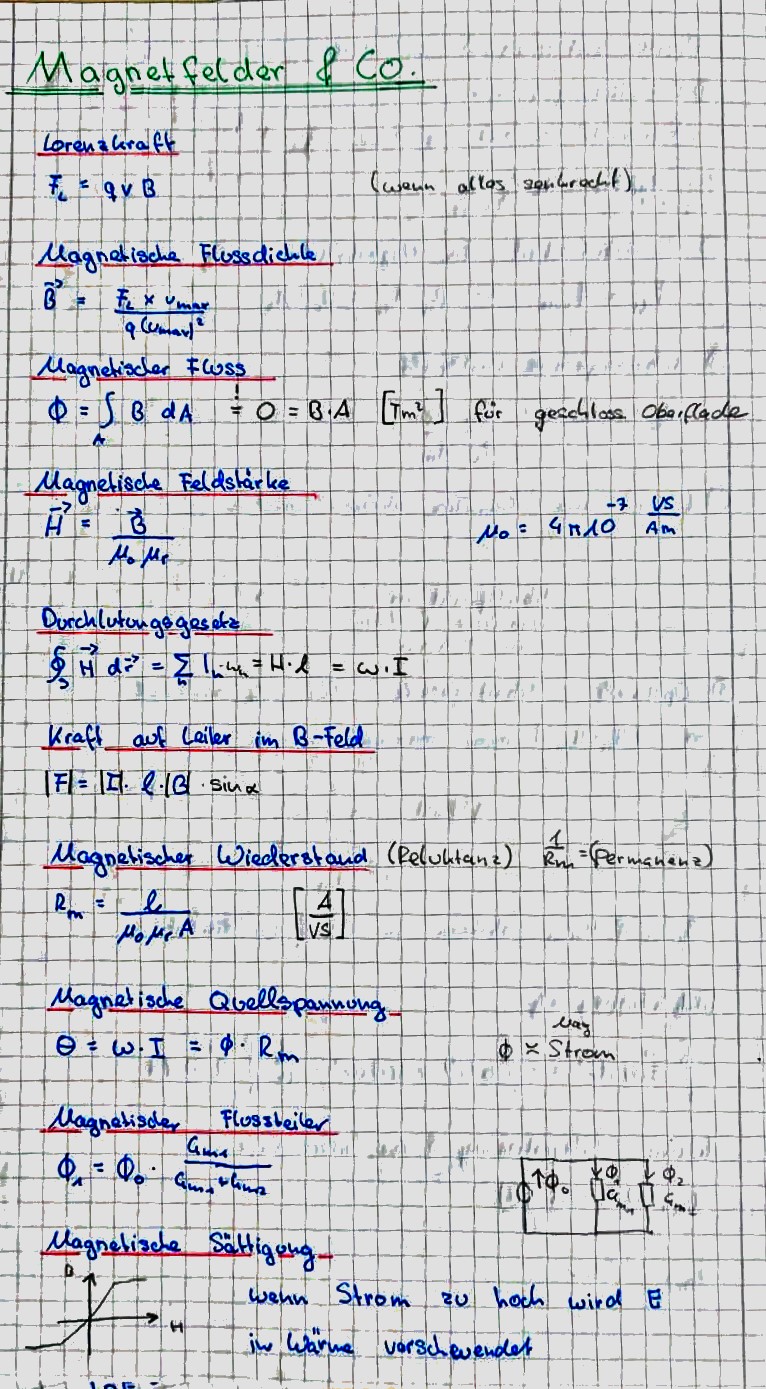 Magnetfelder & Co.
Lorenzkraft
F_L = q v B (wenn alles senkrecht)
Magnetische Flussdichte
B⃗ = F_L × v_max / q (v_max)²
Magnetischer Fluss
Φ = ∫_A B dA != 0 = B·A [Tm²] für geschloss Oberfläche
Magnetische Feldstärke
H⃗ = B⃗ / μ₀ μ_r μ₀ = 4π10⁻⁷ VS/Am
Durchlutungsgesetz
∮_S H⃗ dr⃗ = Σ_n I_n·w_n = H·l = w·I
Kraft auf Leiter im B-Feld
|F| = |I|· l·|B| · sin α
Magnetischer Wiederstand (Reluktanz) 1/R_m = (Permanenz)
R_m = l / μ₀ μ_r A [A/VS]
Magnetische Quellspannung
Θ = w·I = Φ· R_m Φ ≈ mag Strom
Magnetischer Flussteiler
Φ₁ = Φ₀ · G_m1 / G_m1 + G_m2
↑Φ₀ Φ₁ G_m1 Φ₂ G_m2
Magnetische Sättigung
B
H
wenn Strom zu hoch wird E
in Wärme verschwendet